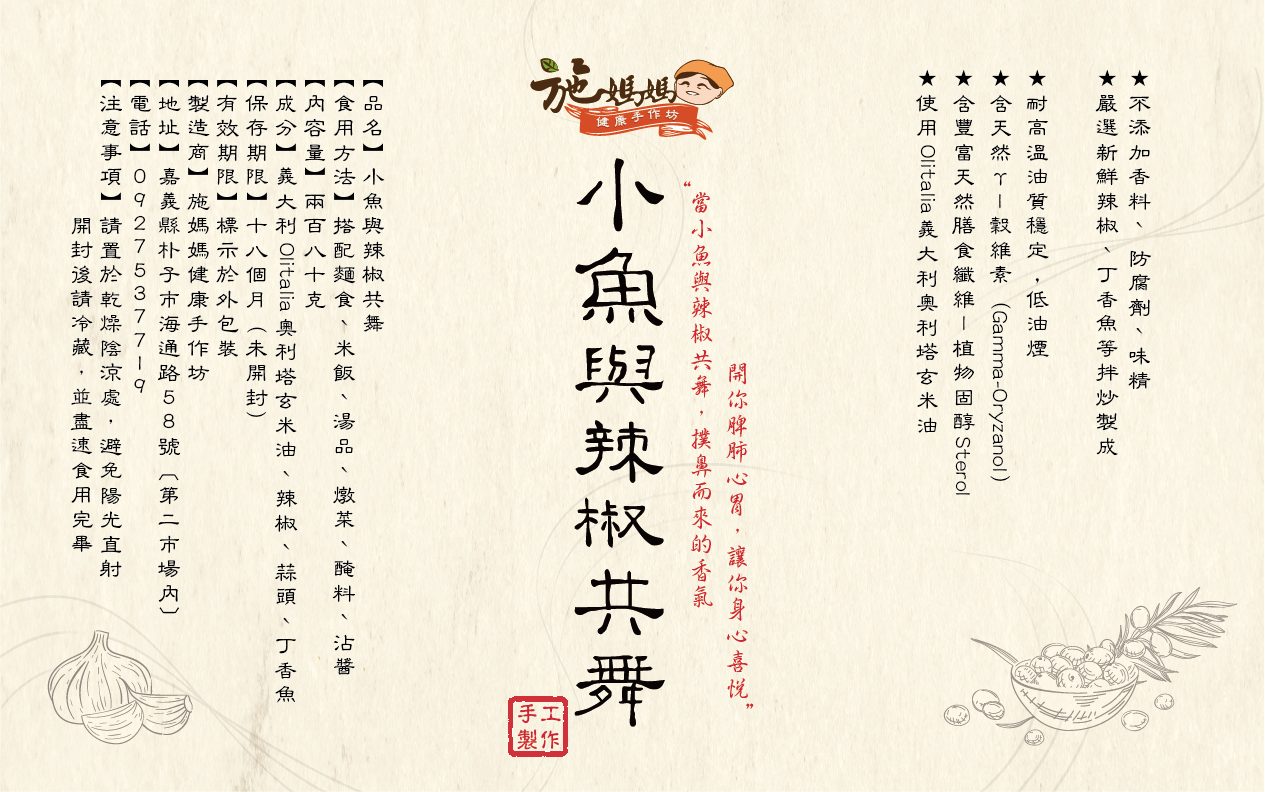 ★ 不添加香料、防腐劑、味精
★ 嚴選新鮮辣椒、丁香魚等拌炒製成
★ 耐高溫油質穩定，低油煙
★ 含天然ㄚ－穀維素 (Gamma-Oryzanol)
★ 含豐富天然膳食纖維－植物固醇 Sterol
★ 使用 Olitalia 義大利奧利塔玄米油
施媽媽
健康手作坊
開你脾肺心胃，讓你身心喜悅”
“當小魚與辣椒共舞，撲鼻而來的香氣
小魚與辣椒共舞
工作
手製
【品名】小魚與辣椒共舞
【食用方法】搭配麵食、米飯、湯品、燉菜、醃料、沾醬
【內容量】兩百八十克
【成分】義大利 Olitalia 奧利塔玄米油、辣椒、蒜頭、丁香魚
【保存期限】十八個月（未開封）
【有效期限】標示於外包裝
【製造商】施媽媽健康手作坊
【地址】嘉義縣朴子市海通路58號〔第二市場內〕
【電話】0927537719
【注意事項】請置於乾燥陰涼處，避免陽光直射
開封後請冷藏，並盡速食用完畢